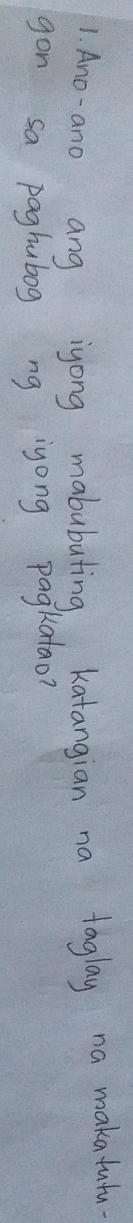 1. Ano-ano ang iyong mabubuting katangian na taglay na makatutu-
gon sa paghubog ng iyong pagkatao?